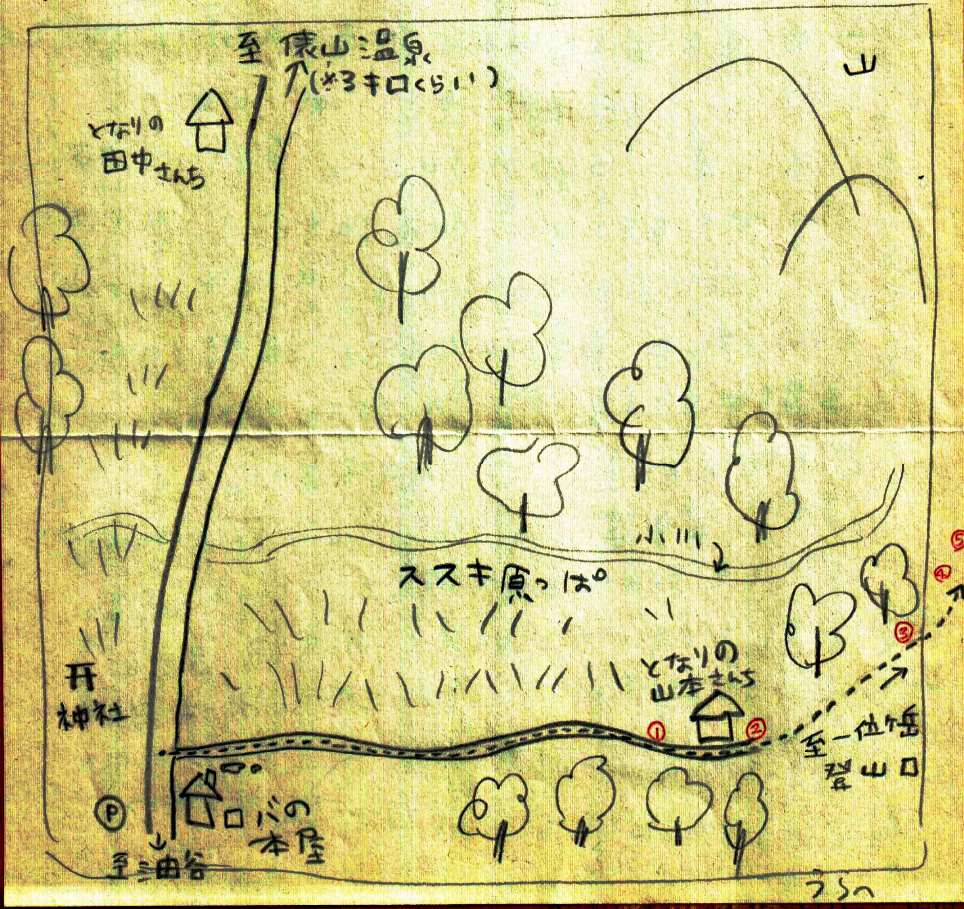 至 俵山温泉
(※3キロくらい)
となりの
田中さんち
山
小川
ススキ原っぱ
⑤
④
③
となりの
山本さんち
①
②
神社
至一位ヶ岳
登山口
P
ロバの
本屋
至油谷
うらへ